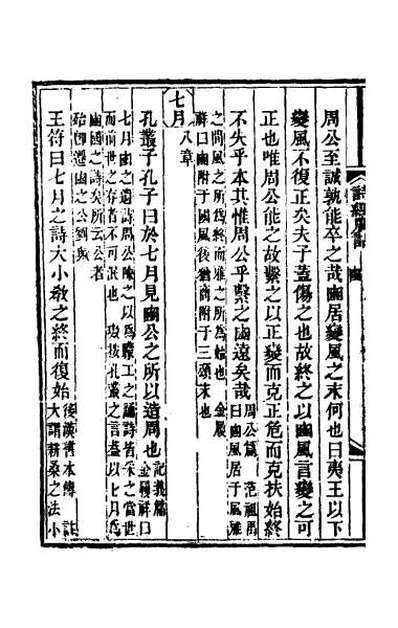 詩經廣詁 豳
周公至誠孰能卒之哉豳居變風之末何也曰夷王以下
變風不復正矣夫子蓋傷之也故終之以豳風言變之可
正也唯周公能之故繫之以正變而克正危而克扶始終
不失乎本其惟周公乎繫之豳遠矣哉
周公篇 范祖禹
曰豳風居于風雅
之間風之所爲終而雅之所爲始也 金履
祥曰豳附于國風後猶商附于三頌末也
七月八章
孔叢子孔子曰於七月見豳公之所以造周也
記義篇
金履祥曰
七月豳之遺詩周公陳之以爲矇工之誦詩皆采之當世
而前世之存者不可泯也 按孔叢之言蓋以七月爲
豳國之詩矣所云公者
殆卽遷豳之公劉歟
王符曰七月之詩大小敎之終而復始
後漢書本傳 註
大謂耕桑之法小